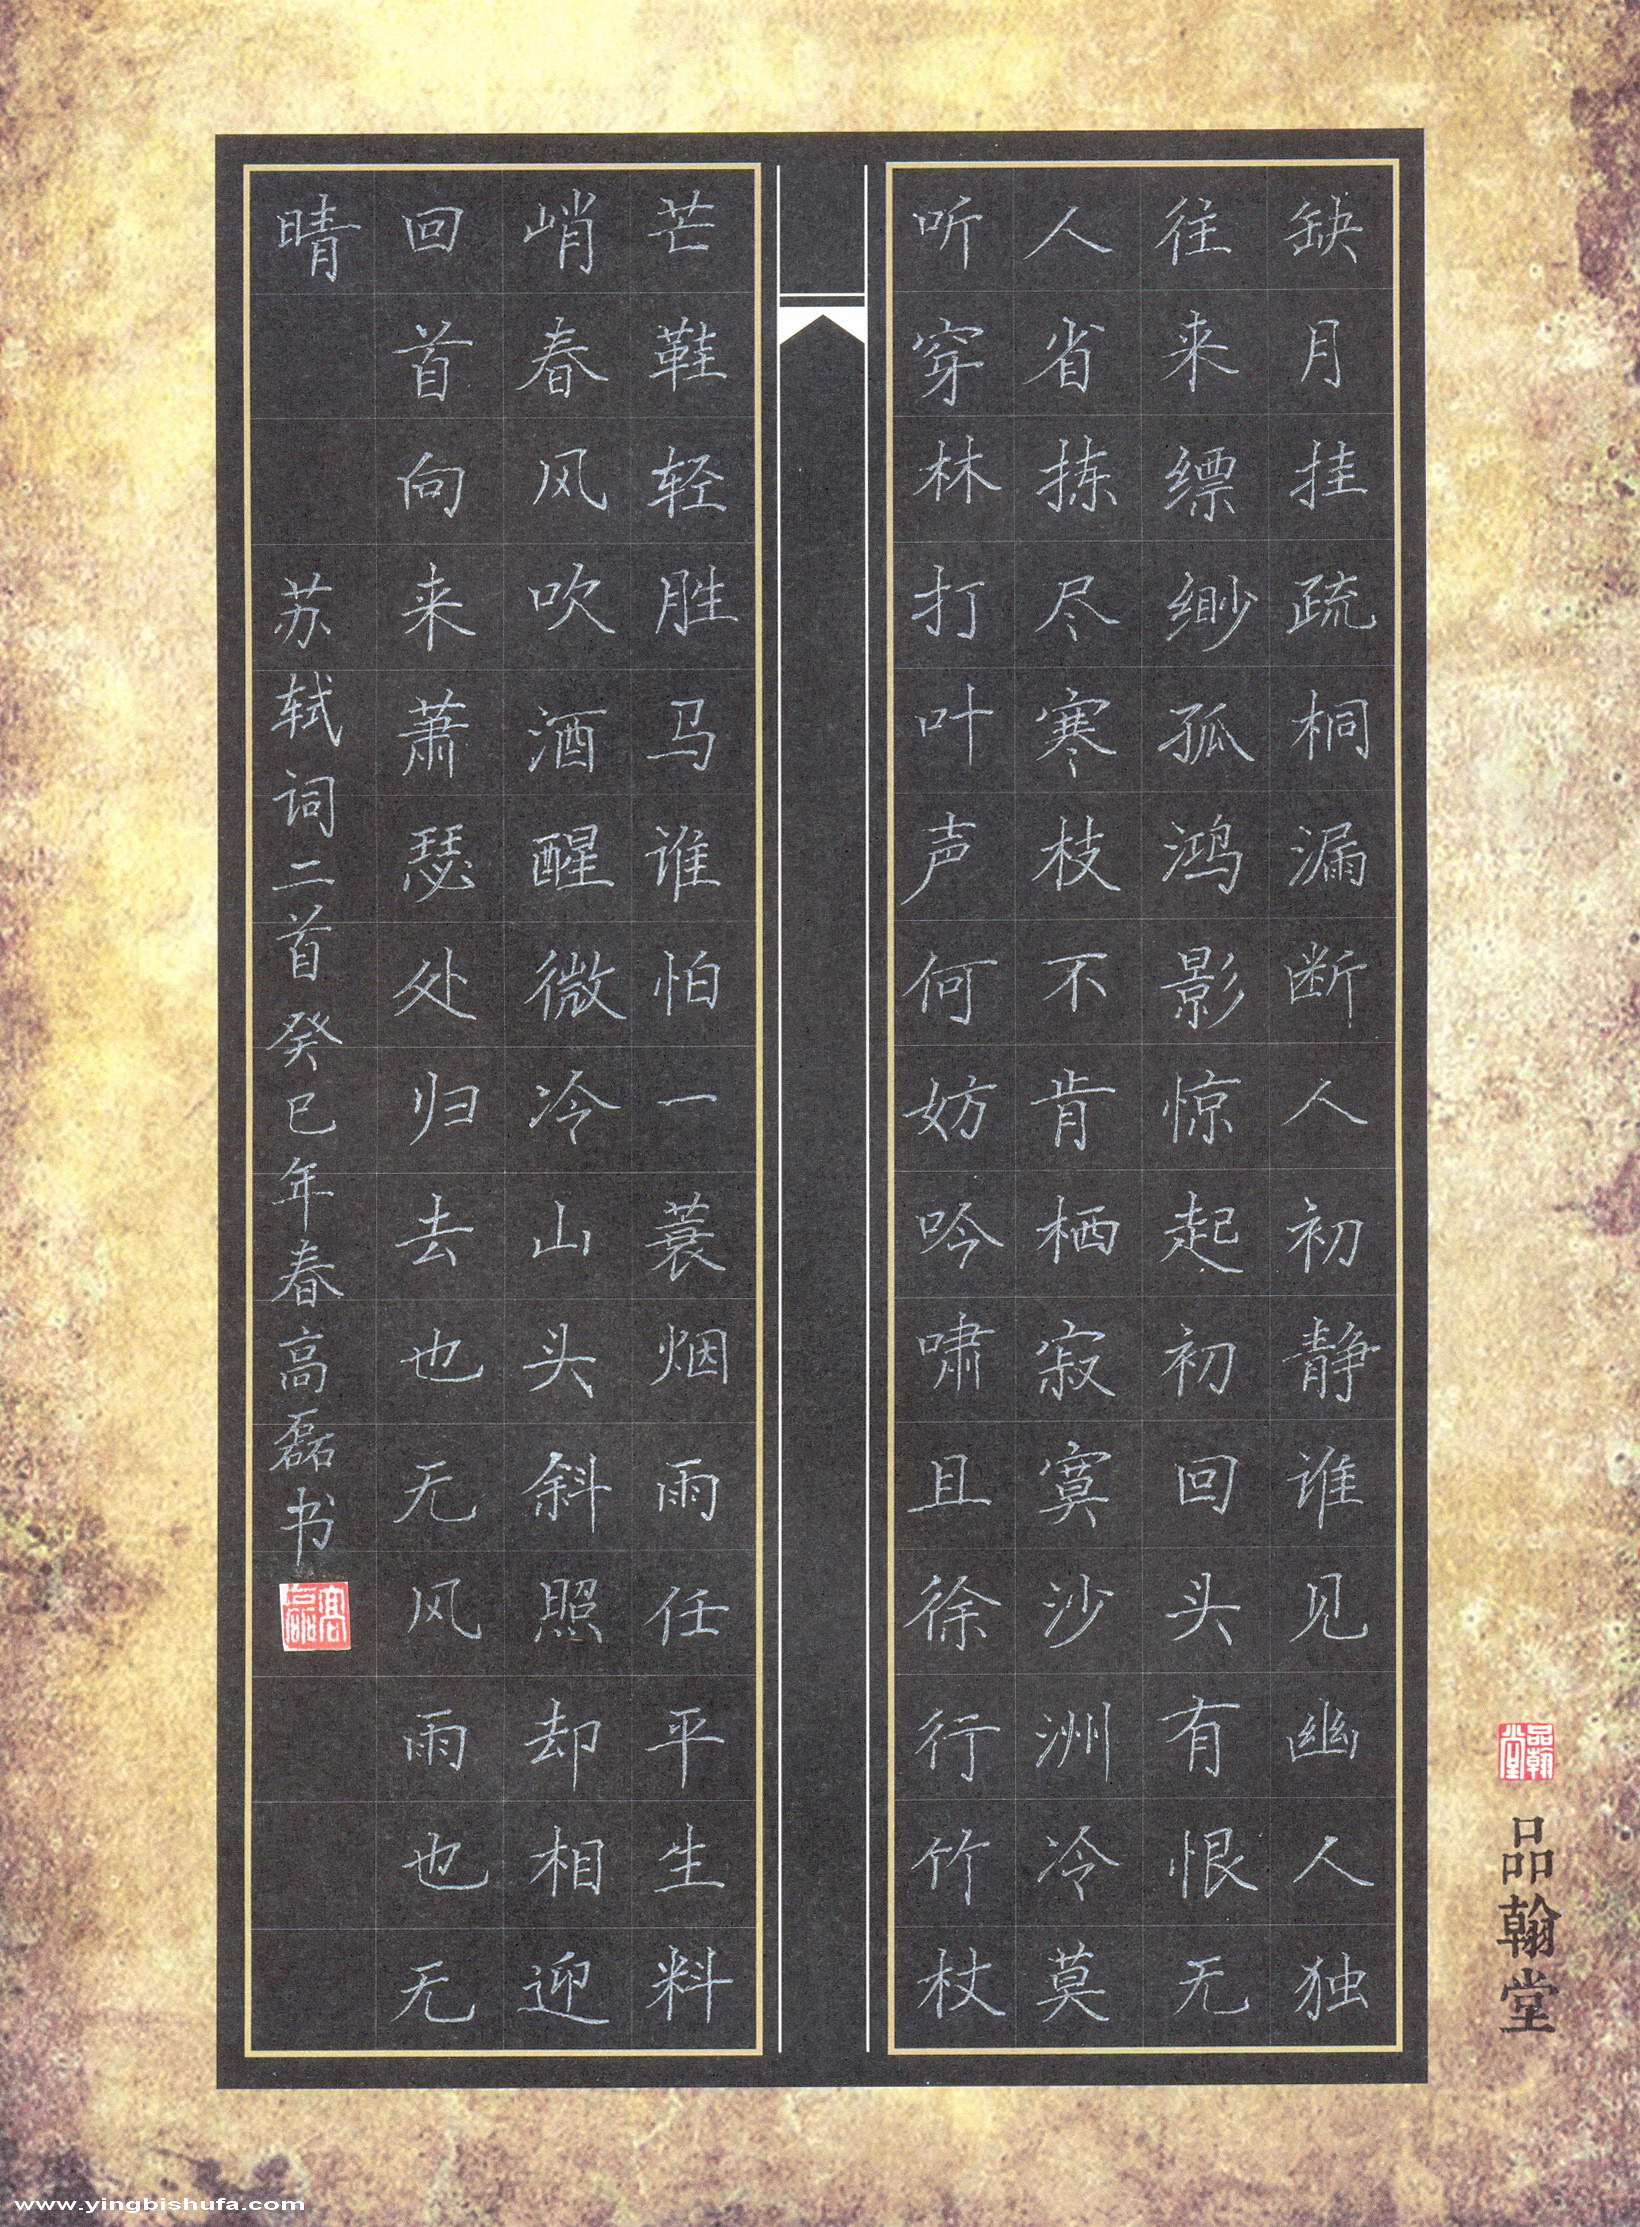 缺月挂疏桐漏断人初静谁见幽人独
往来缥缈孤鸿影惊起初回头有恨无
人省拣尽寒枝不肯栖寂寞沙洲冷莫
听穿林打叶声何妨吟啸且徐行竹杖
芒鞋轻胜马谁怕一蓑烟雨任平生料
峭春风吹酒醒微冷山头斜照却相迎
回首向来萧瑟处归去也无风雨也无
晴
苏轼词二首癸巳年春高磊书
高磊
品翰堂
品翰堂
www.yingbishufa.com